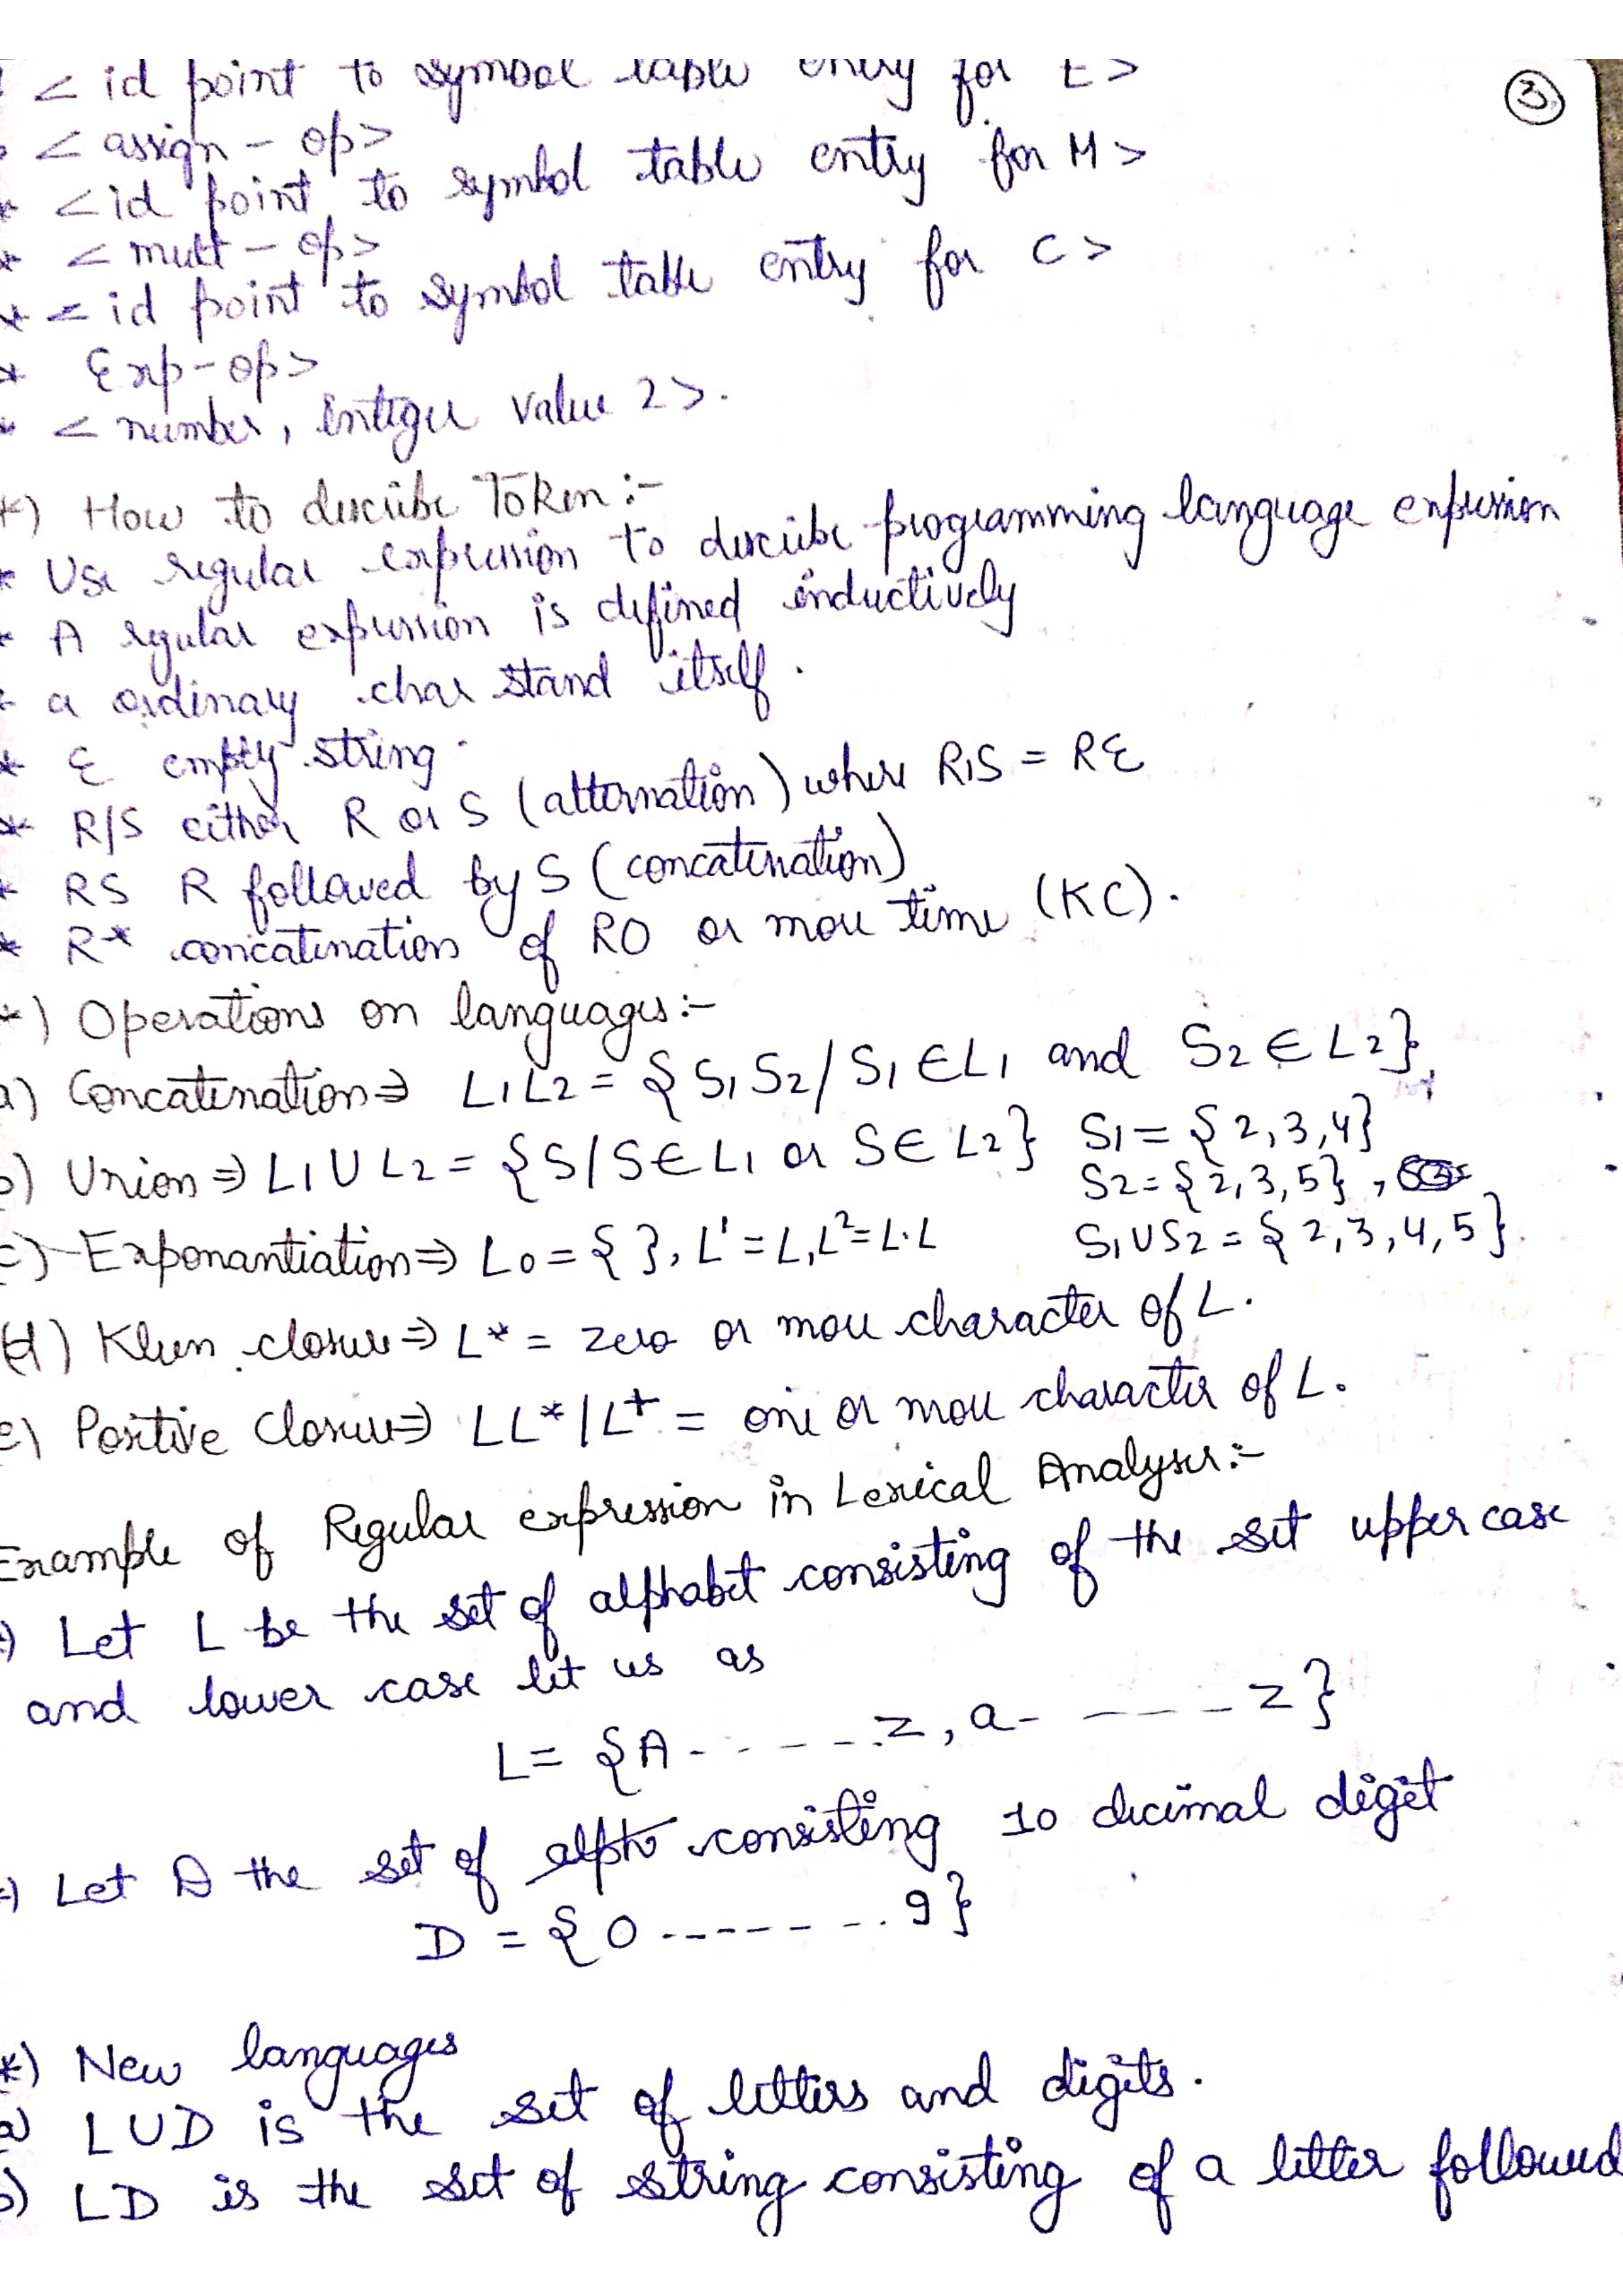 3
< id point to symbol table entry for E>
* < assign - op>
* < id point to symbol table entry for M >
* < mult - op>
* < id point to symbol table entry for C >
* Exp-op>
* < number, integer value 2>.
*) How to describe Token :-
* Use regular expression to describe programming language expression
* A regular expression is defined inductively
* a ordinary char stand itself.
* ε empty string
* R/S either R or S (alternation) where R1S = Rε
* RS R followed by S (concatenation)
* R* concatenation of RO or more time (KC).
*) Operations on languages:-
a) Concatenation⇒ L1L2 = {S1S2/S1 ∈L1 and S2 ∈ L2}
b) Union ⇒ L1 U L2 = {S/S∈L1 or S∈ L2} S1 = {2,3,4}
S2 = {2,3,5},
c) Exponantiation⇒ Lo = { }, L' = L, L²= L.L S1US2 = {2,3,4,5}.
d) Kleen closure⇒ L* = zero or more character of L.
e) Positive Closure⇒ LL*/L+ = one or more character of L.
Example of Regular expression in Lexical Analyser:-
Let L be the set of alphabet consisting of the set upper case
and lower case let us as
L= {A - - - - - Z, a- - - - - z}
Let D the set of alph consisting 10 decimal digit
D = {0 - - - - - - - 9}
*) New languages
a) LUD is the set of letters and digits.
b) LD is the set of string consisting of a letter followed